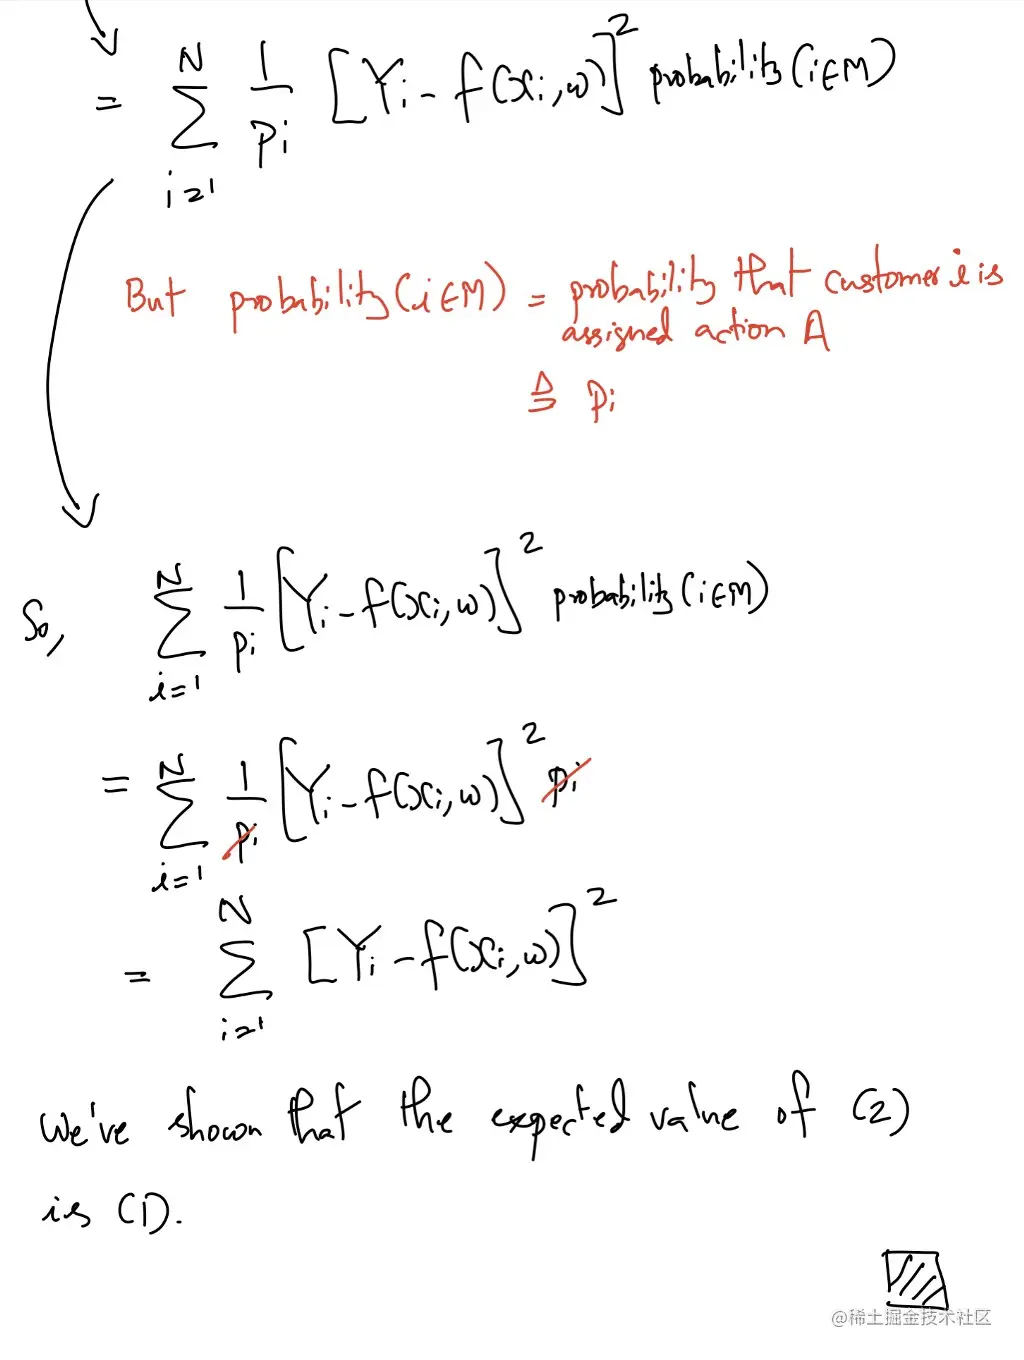 = \sum_{i=1}^{N} \frac{1}{p_i} [Y_i - f(x_i, w)]^2 probability(i∈M)
But probability(i∈M) = probability that customer i is
assigned action A
≜ p_i
So, \sum_{i=1}^{N} \frac{1}{p_i} [Y_i - f(x_i, w)]^2 probability(i∈M)
= \sum_{i=1}^{N} \frac{1}{p_i} [Y_i - f(x_i, w)]^2 p_i
= \sum_{i=1}^{N} [Y_i - f(x_i, w)]^2
We've shown that the expected value of (2)
is (1).
@稀土掘金技术社区